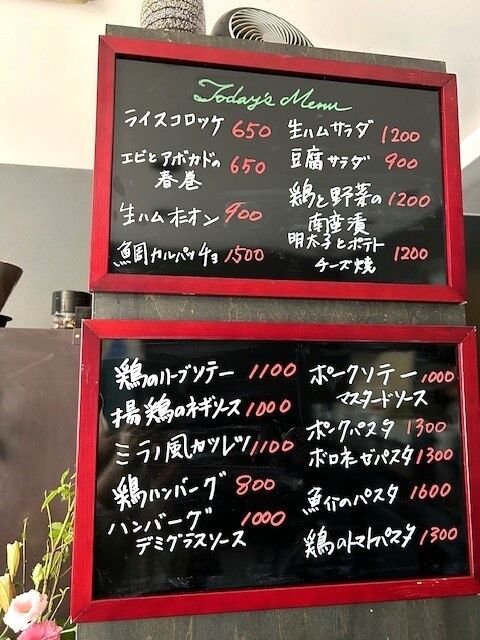 Today's Menu
ライスコロッケ 650
エビとアボカドの 650
春巻
生ハムオニオン 900
鯛カルパッチョ 1500
生ハムサラダ 1200
豆腐サラダ 900
鶏と野菜の 1200
南蛮漬
明太子とポテト
チーズ焼 1200
鶏のハーブソテー 1100
揚鶏のネギソース 1000
ミラノ風カツレツ 1100
鶏ハンバーグ 800
ハンバーグ 1000
デミグラスソース
ポークソテー 1000
マスタードソース
ポークパスタ 1300
ボロネーゼパスタ 1300
魚介のパスタ 1600
鶏のトマトパスタ 1300